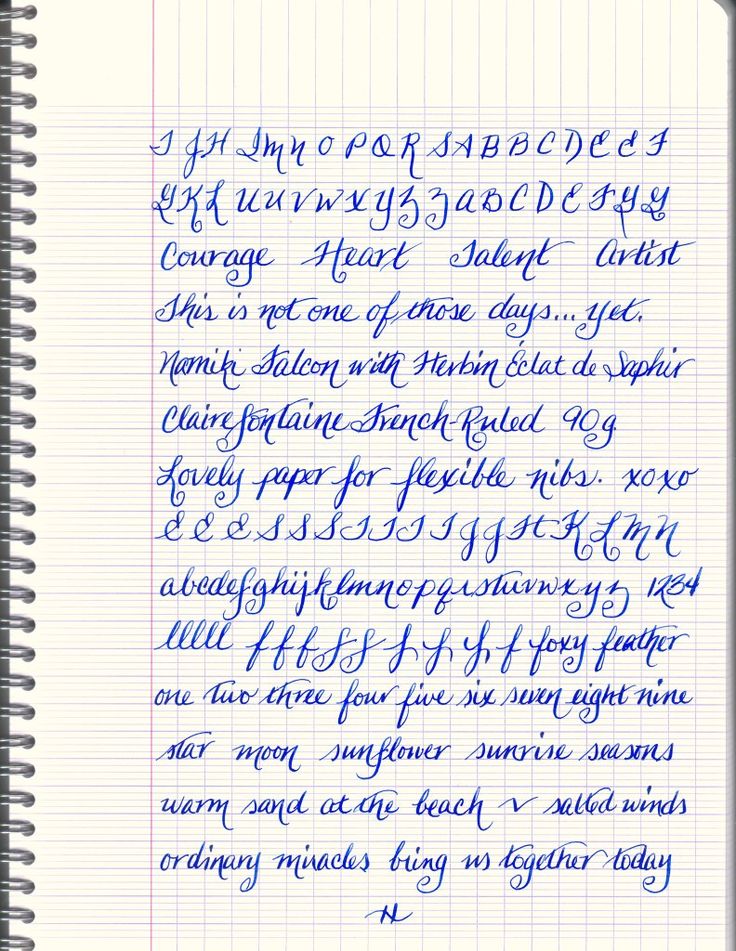 I J H I M N O P Q R S A B B C D E E F
G K L U U V W X Y Z Z A B C D E F Y Y
Courage Heart Talent Artist
This is not one of those days... yet.
Namiki Falcon with Herbin Éclat de Saphir
Clairefontaine French-Ruled 90g
Lovely paper for flexible nibs. xoxo
E E E S S S I I I I J J H K L M N
abcdefghijklmnopqrstuvwxyz 1234
lllll f f f f f f f f f foxy feather
one two three four five six seven eight nine
star moon sunflower sunrise seasons
warm sand at the beach ~ salted winds
ordinary miracles bring us together today